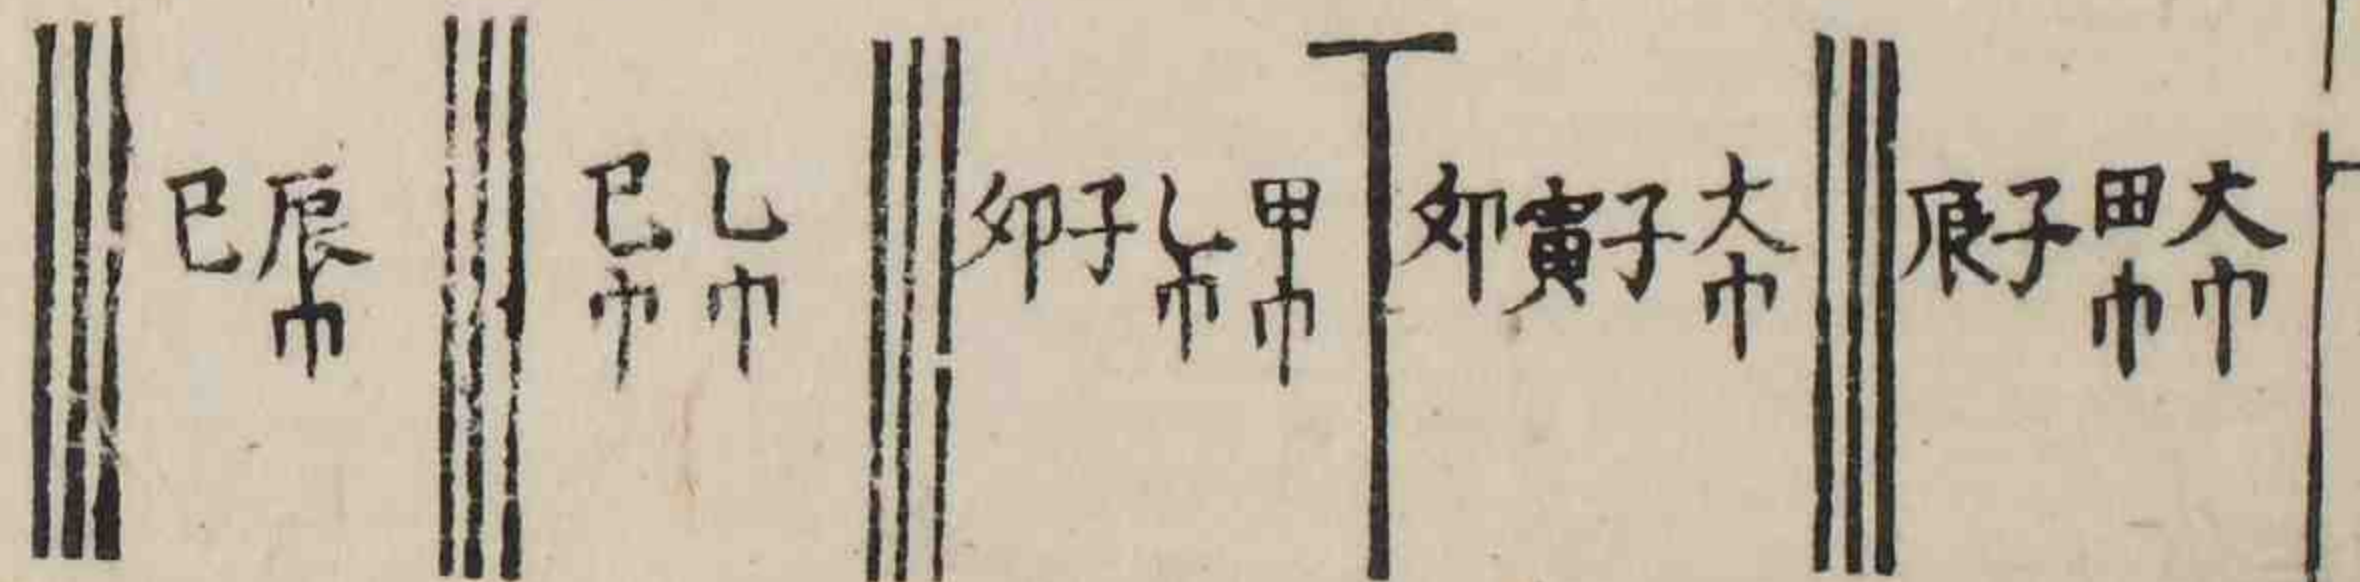 大巾
田巾
子
辰
大巾
子
寅
卯
甲巾
乙巾
子
卯
乙巾
巳巾
辰巾
巳